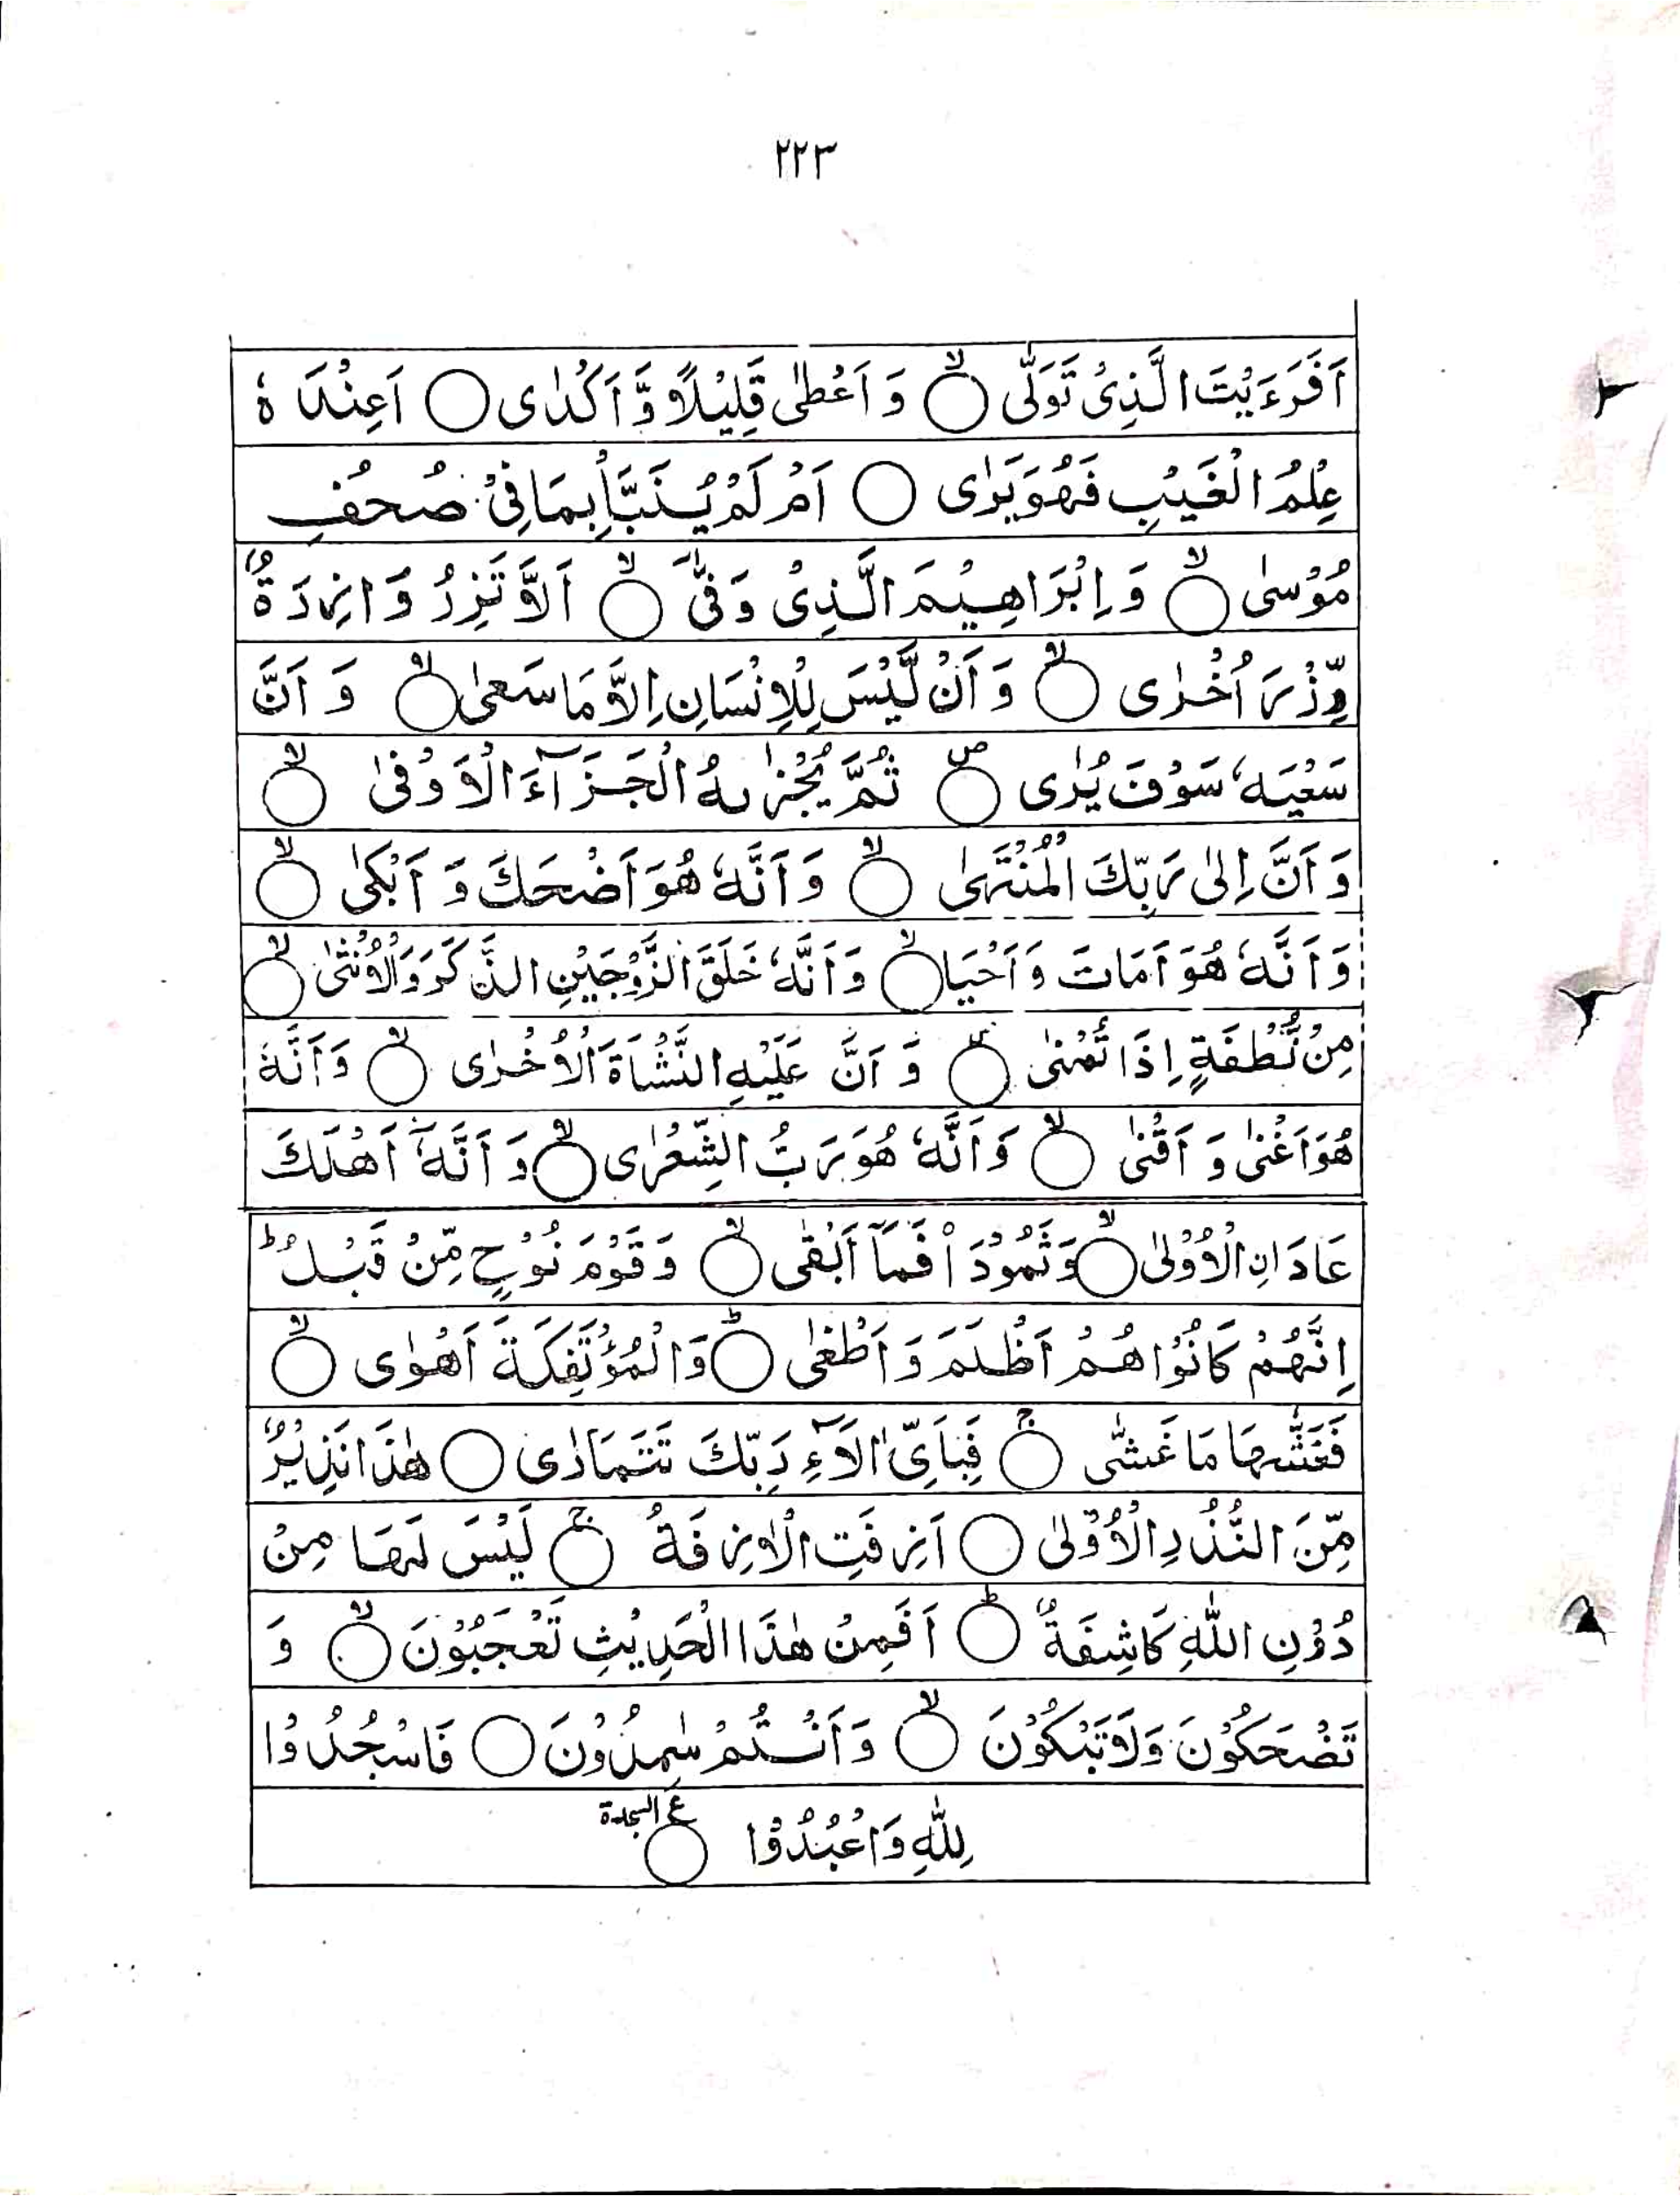 ٢٢٣
اَفَرَءَيْتَ الَّذِىْ تَوَلّٰى ۙ○ وَ اَعْطٰى قَلِيْلًا وَّ اَكْدٰى ○ اَعِنْدَهٗ
عِلْمُ الْغَيْبِ فَهُوَ يَرٰى ○ اَمْ لَمْ يُنَبَّاْ بِمَا فِىْ صُحُفِ
مُوْسٰى ۙ○ وَ اِبْرَاهِيْمَ الَّذِىْ وَفّٰى ۙ○ اَلَّا تَزِرُ وَازِرَةٌ
وِّزْرَ اُخْرٰى ۙ○ وَ اَنْ لَّيْسَ لِلْاِنْسَانِ اِلَّا مَا سَعٰى ۙ○ وَ اَنَّ
سَعْيَهٗ سَوْفَ يُرٰى ۖ○ ثُمَّ يُجْزٰىهُ الْجَزَآءَ الْاَوْفٰى ۙ○
وَ اَنَّ اِلٰى رَبِّكَ الْمُنْتَهٰى ۙ○ وَ اَنَّهٗ هُوَ اَضْحَكَ وَ اَبْكٰى ۙ○
وَ اَنَّهٗ هُوَ اَمَاتَ وَ اَحْيَا ۙ○ وَ اَنَّهٗ خَلَقَ الزَّوْجَيْنِ الذَّكَرَ وَالْاُنْثٰى ۙ○
مِنْ نُّطْفَةٍ اِذَا تُمْنٰى ۖ○ وَ اَنَّ عَلَيْهِ النَّشْاَةَ الْاُخْرٰى ۙ○ وَ اَنَّهٗ
هُوَ اَغْنٰى وَ اَقْنٰى ۙ○ وَ اَنَّهٗ هُوَ رَبُّ الشِّعْرٰى ۙ○ وَ اَنَّهٗٓ اَهْلَكَ
عَادَانِ الْاُوْلٰى ۙ○ وَ ثَمُوْدَا۟ فَمَآ اَبْقٰى ۙ○ وَ قَوْمَ نُوْحٍ مِّنْ قَبْلُ ؕ
اِنَّهُمْ كَانُوْا هُمْ اَظْلَمَ وَ اَطْغٰى ؕ○ وَالْمُؤْتَفِكَةَ اَهْوٰى ۙ○
فَغَشّٰىهَا مَا غَشّٰى ۚ○ فَبِاَىِّ اٰلَآءِ رَبِّكَ تَتَمَارٰى ○ هٰذَا نَذِيْرٌ
مِّنَ النُّذُرِ الْاُوْلٰى ○ اَزِفَتِ الْاٰزِفَةُ ۚ○ لَيْسَ لَهَا مِنْ
دُوْنِ اللّٰهِ كَاشِفَةٌ ؕ○ اَفَمِنْ هٰذَا الْحَدِيْثِ تَعْجَبُوْنَ ۙ○ وَ
تَضْحَكُوْنَ وَلَا تَبْكُوْنَ ۙ○ وَ اَنْتُمْ سٰمِدُوْنَ ○ فَاسْجُدُوْا
لِلّٰهِ وَاعْبُدُوْا ○ ع السجدة